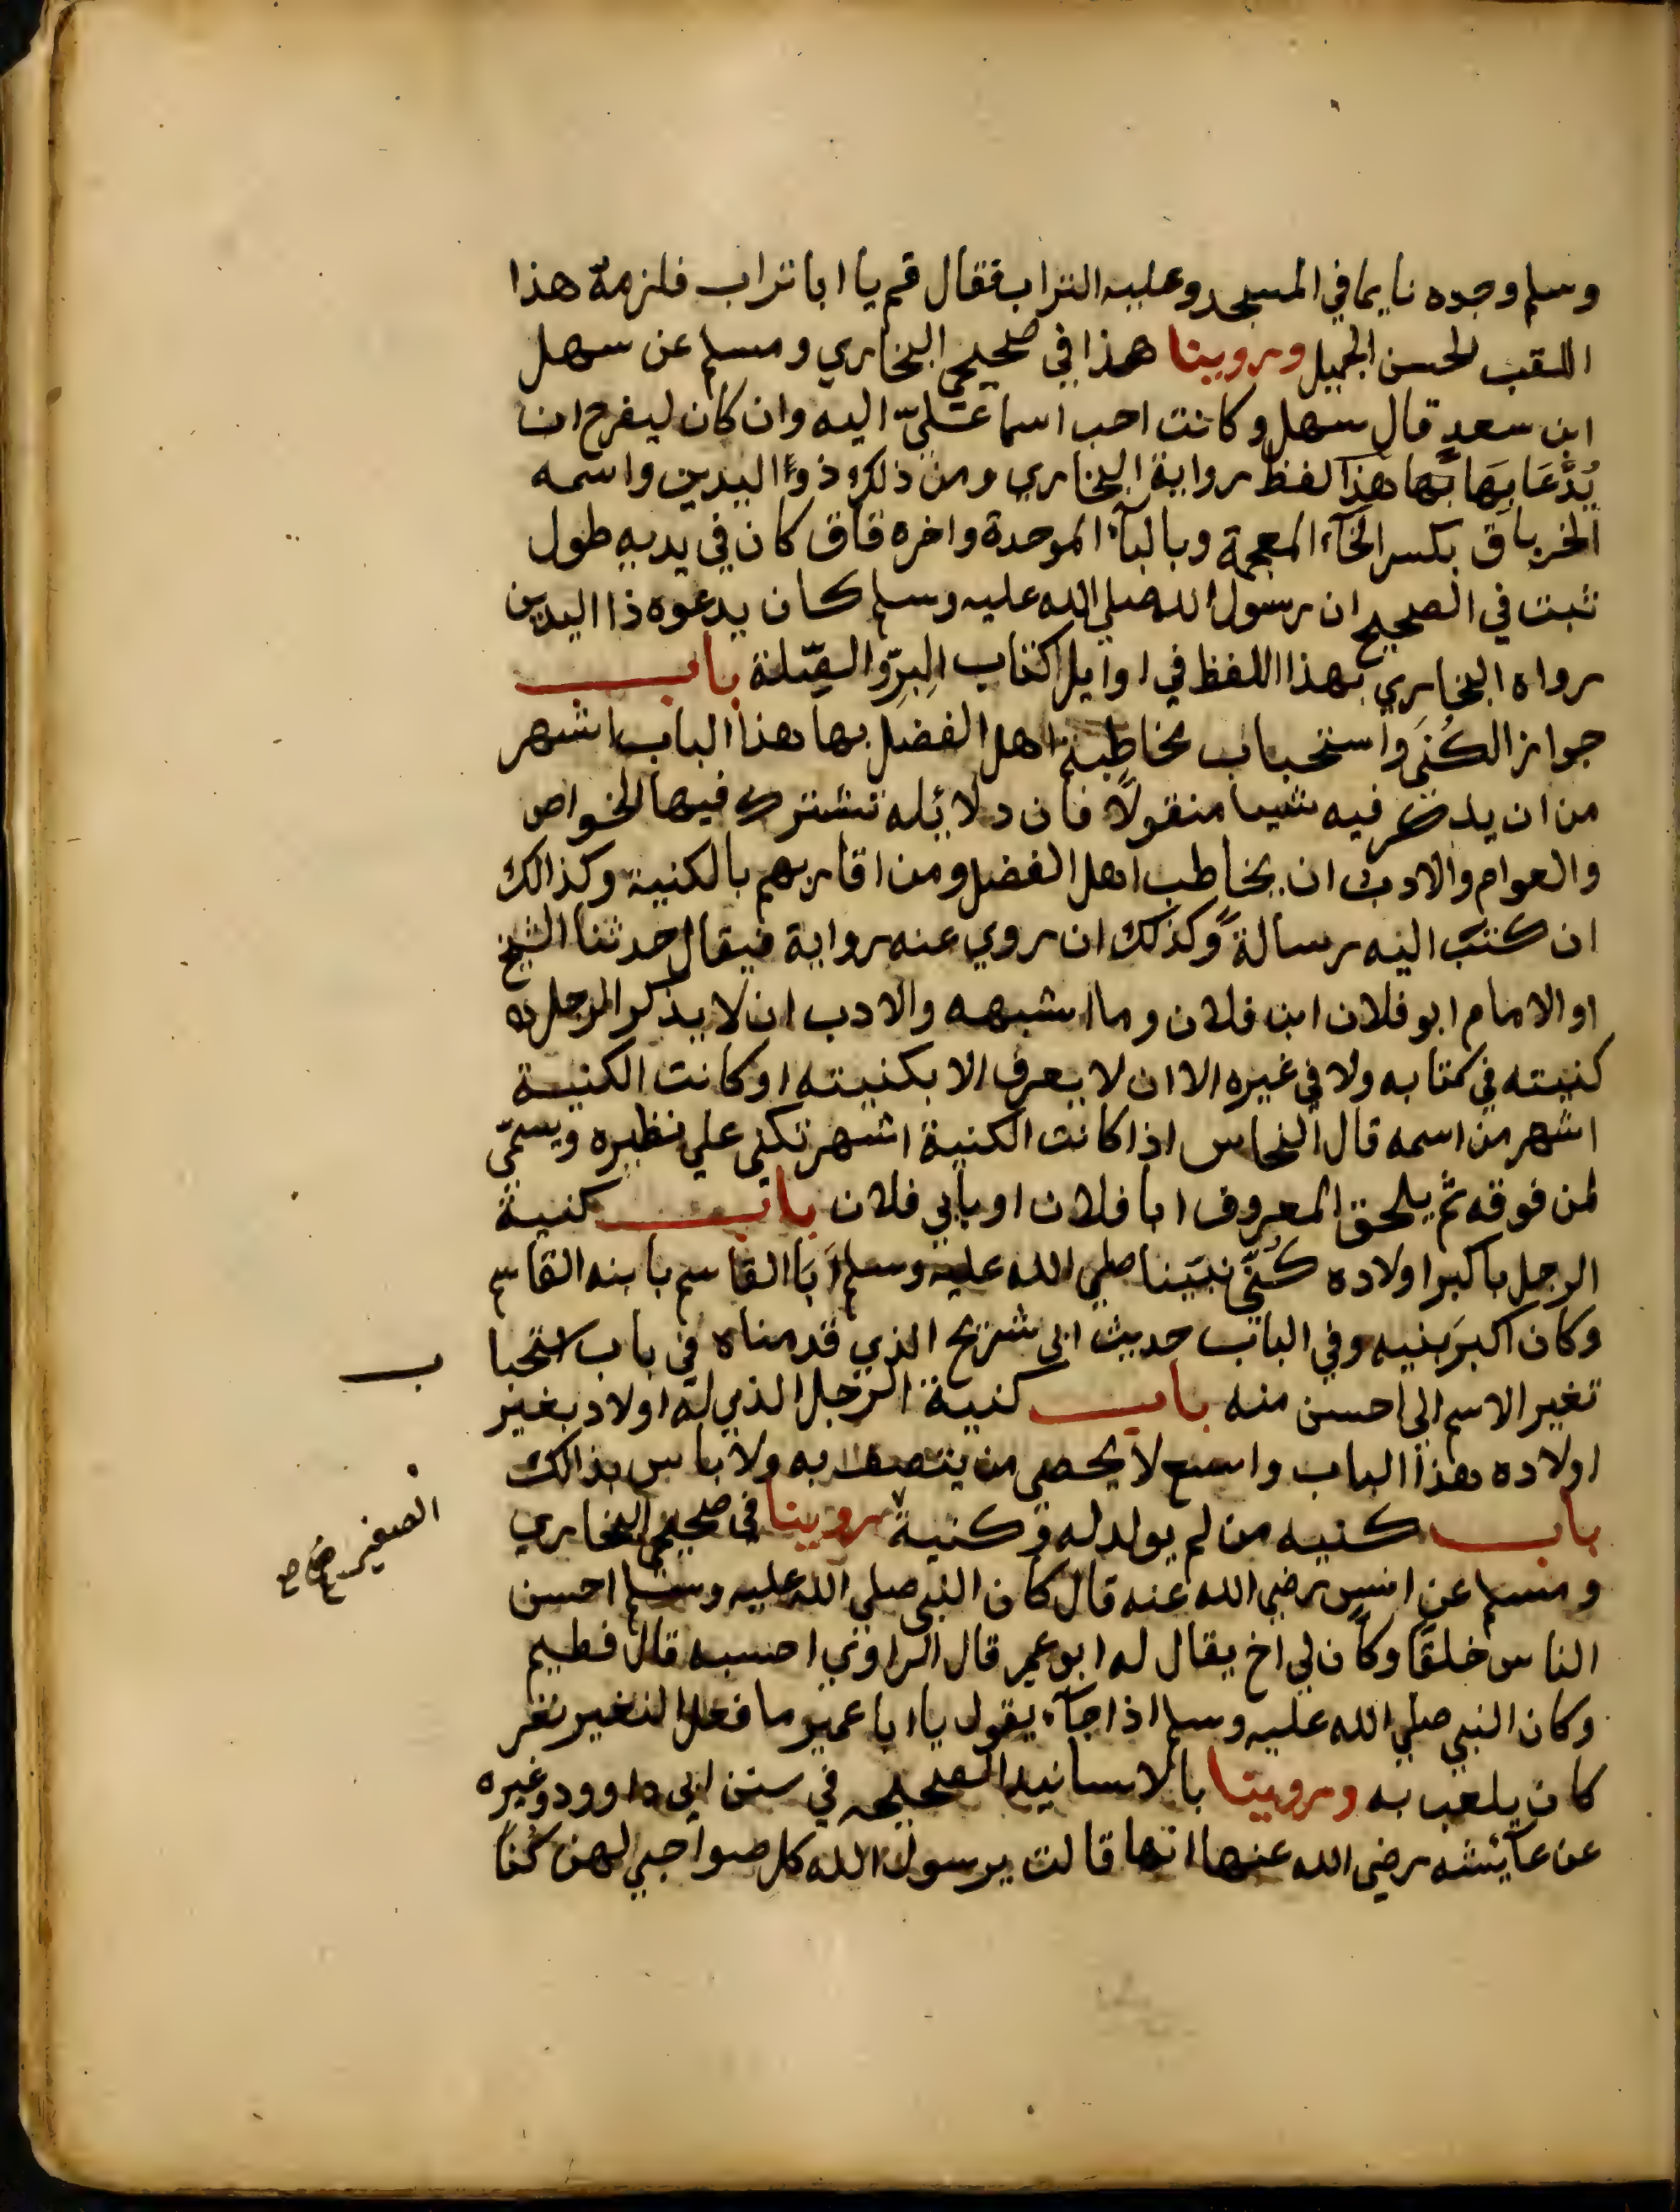 وسلم وجده نايما في المسجد وعليه التراب فقال قم يا ابا تراب فلزمه هذا
اللقب الحسن الجميل وروينا هذا في صحيحي البخاري ومسلم عن سهل
ابن سعد قال سهل وكانت احب اسما عَليّ اليه وان كان ليفرح ان
يُدْعَا بِهَا هذا لفظ رواية البخاري ومن ذلك ذوا اليدين واسمه
الخرباق بكسر الخآء المعجمة وبالبآء الموحدة واخره قاف كان في يديه طول
ثبت في الصحيح ان رسول الله صلي الله عليه وسلم كان يدعوه ذا اليدين
رواه البخاري بهذا اللفظ في اوايل كتاب البِرّ والصِّلة باب
جواز الكُنَى واستحباب مخاطبة اهل الفضل بها هذا الباب اشهر
من ان يذكر فيه شيا منقولاً فان دلائله تشترك فيها الخواص
والعوام والادب ان يخاطب اهل الفضل ومن اقاربهم بالكنية وكذالك
ان كتبَ اليه رسالةً وكذلك ان روي عنه رواية فيقال حدثنا الشيخ
او الامام ابو فلان ابن فلان وما اشبهه والادب ان لا يذكر الرجل
كنيته في كتابه ولا في غيره الا ان لا يعرف الا بكنيته او كانت الكنية
اشهر من اسمه قال النحاس اذا كانت الكنية اشهر تكنى علي نظيره ويسمّي
لمن فوقه ثم يلحق المعروف ابا فلان او بابي فلان باب كنية
الرجل باكبر اولاده كُنّي نبيّنا صلي الله عليه وسلم اَبَا القاسم بابنه القاسم
وكان اكبرَ بنيه وفي الباب حديث ابي شريح الذي قدمناه في باب استحبا
ب
تغير الاسم الى احسن منه باب كنية الرجل الذي له اولاد بغير
اولاده هذا الباب واسع لا يحصي من يتصف به ولا باس بذالك
باب كنيه من لم يولد له وكنية روينا في صحيحي البخاري
الصغير صح
ومسلم عن انس رضي الله عنه قال كان النبي صلي الله عليه وسلم احسن
الناس خلقًا وكان لي اخ يقال له ابو عمير قال الراوي احسبه قال فطيم
وكان النبي صلي الله عليه وسلم اذا جآء يقول يا ابا عمير ما فعل النغير نغر
كان يلعب به وروينا بالاسانيد الصحيحه في سنن ابي داوود وغيره
عن عآئشه رضي الله عنها انها قالت يرسول الله كل صواحبي لهن كُناً